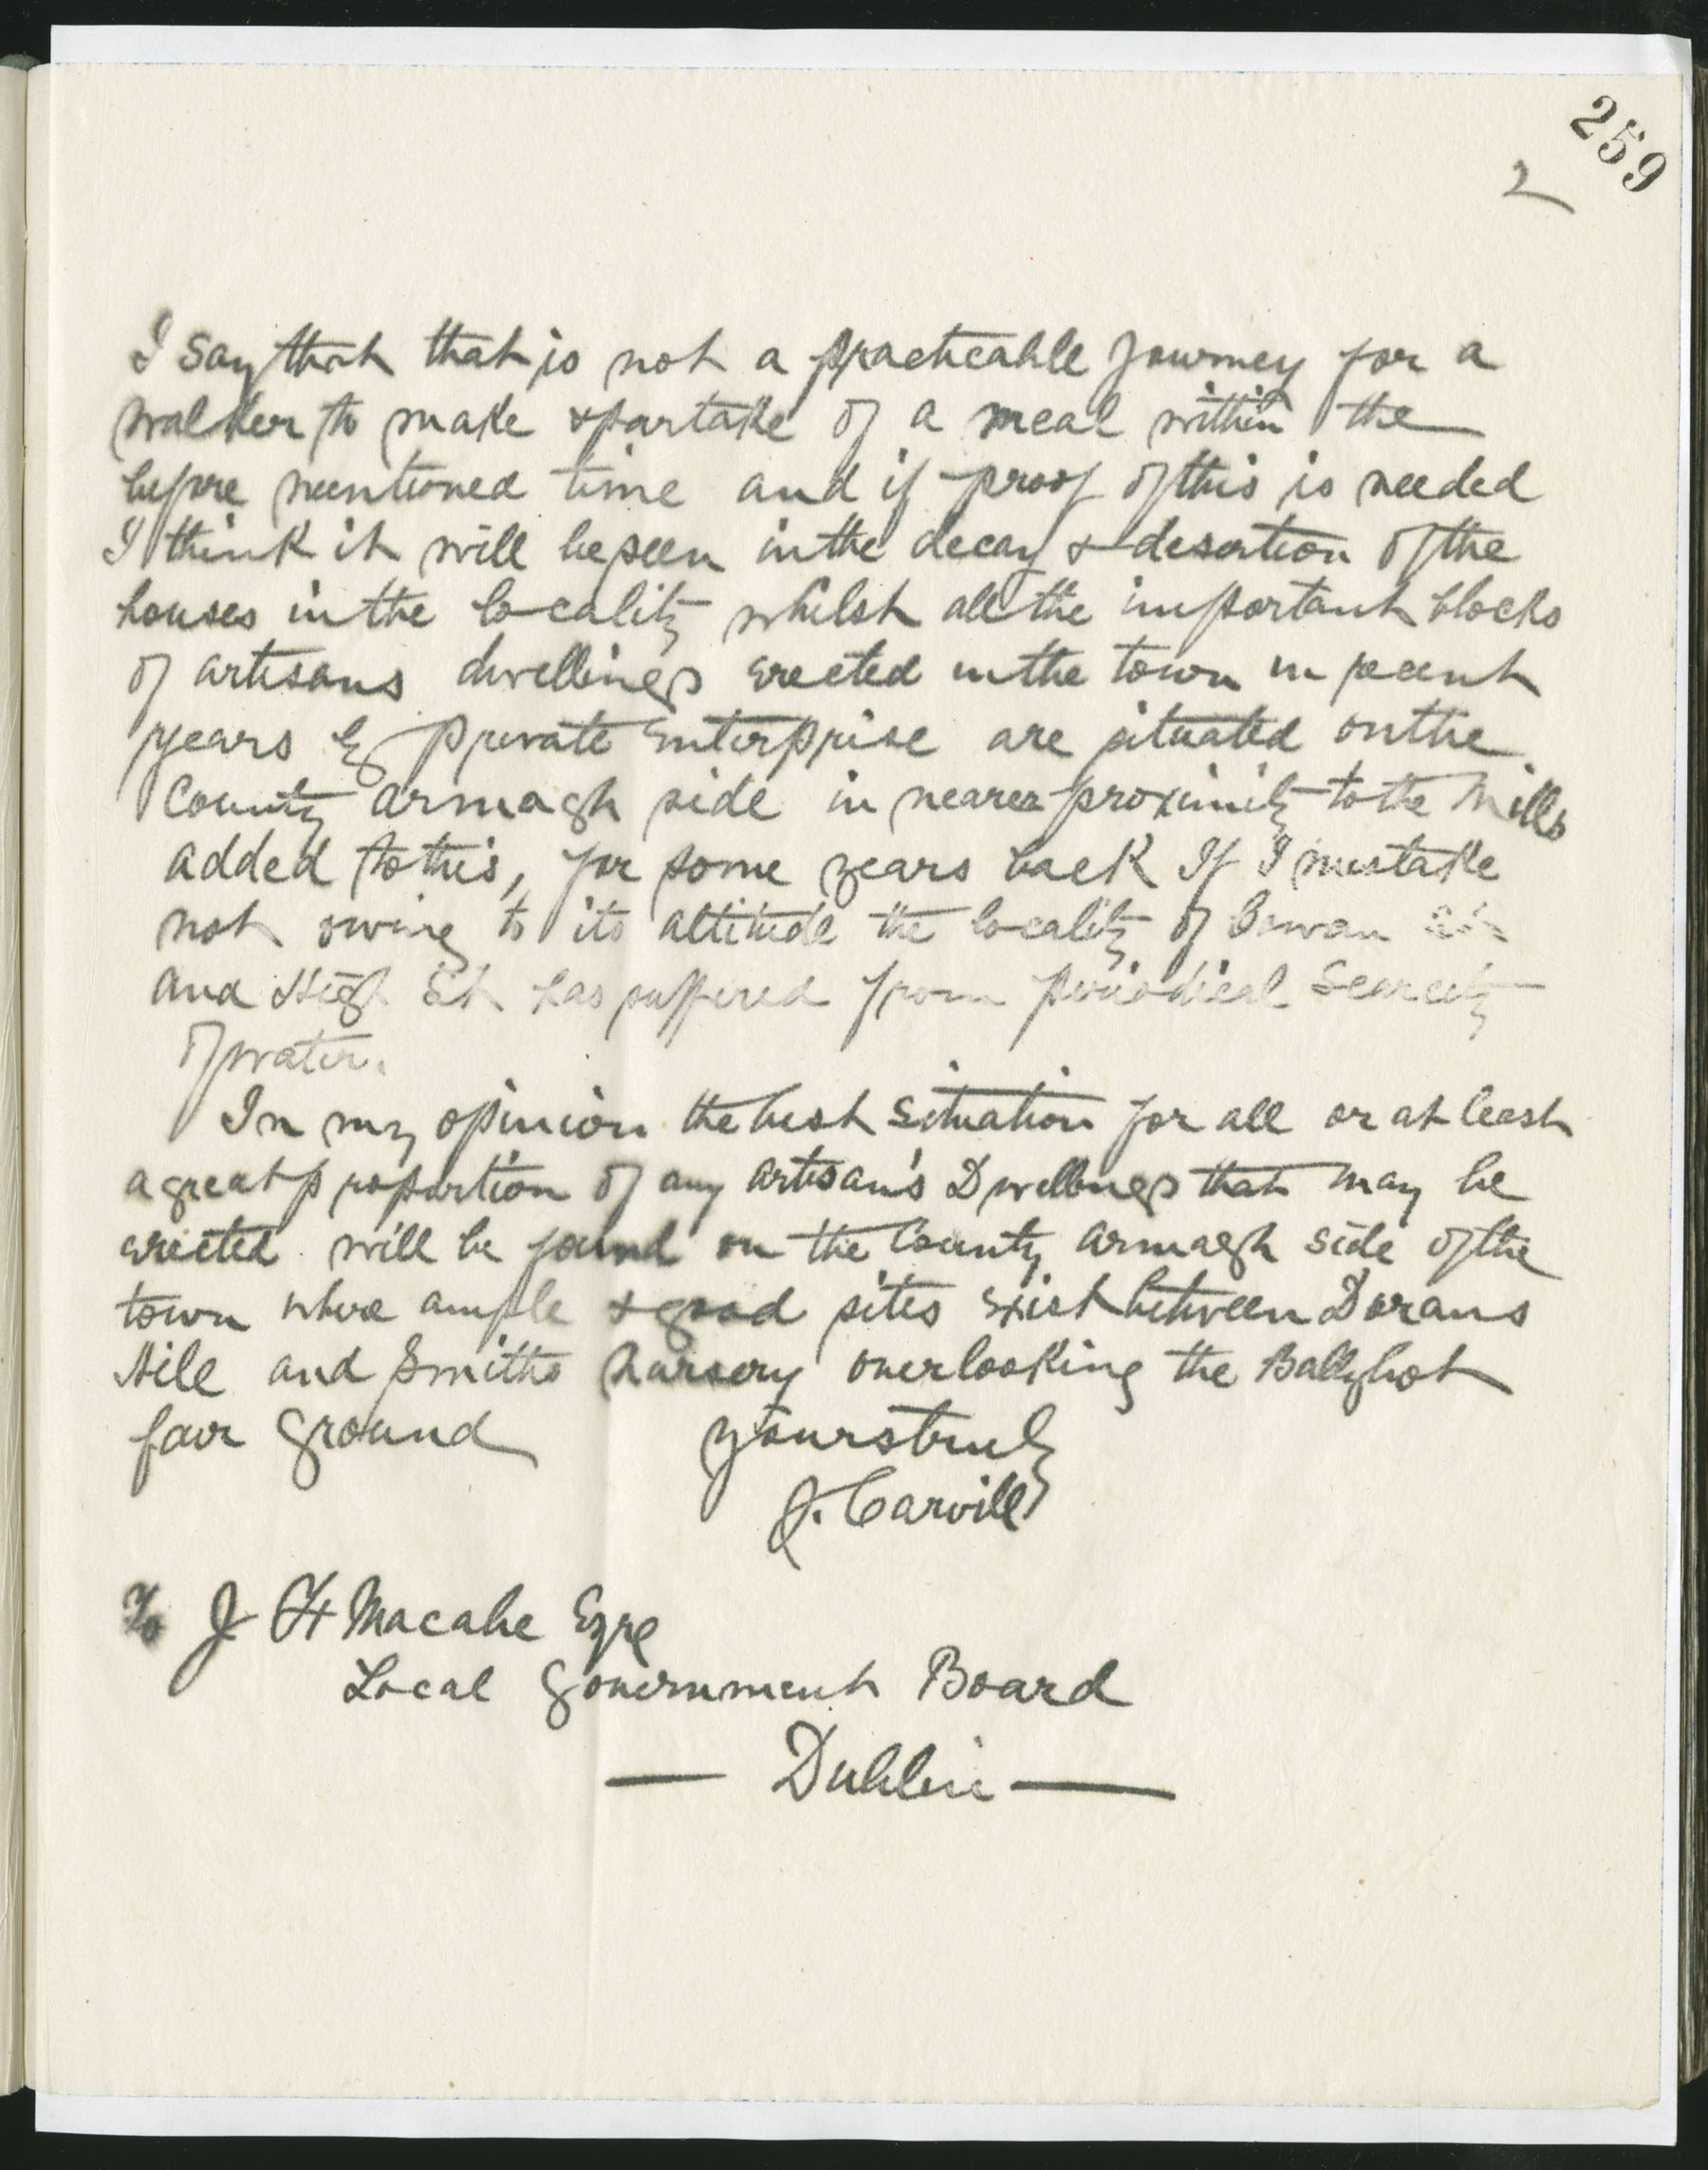 259
2
I say that that is not a practicable journey for a
walker to make & partake of a meal within the
before mentioned time and if proof of this is needed
I think it will be seen in the decay & desertion of the
houses in the locality whilst all the important blocks
of artisans dwellings erected in the town in recent
years by private enterprise are situated on the
County Armagh side in nearer proximity to the Mills
added to this, for some years back If I mistake
not owing to its altitude the locality of Cowan St
and High St has suffered from periodical Scarcity
of water.
In my opinion the best situation for all or at least
a great proportion of any artisan's Dwellings that may be
erected will be found on the County Armagh side of the
town where ample & good sites exist between Dorans
Hill and Smiths Nursery overlooking the Ballybot
fair Ground
yours truly
J. Carvill
To J H Macabe Esqre
Local Government Board
— Dublin —